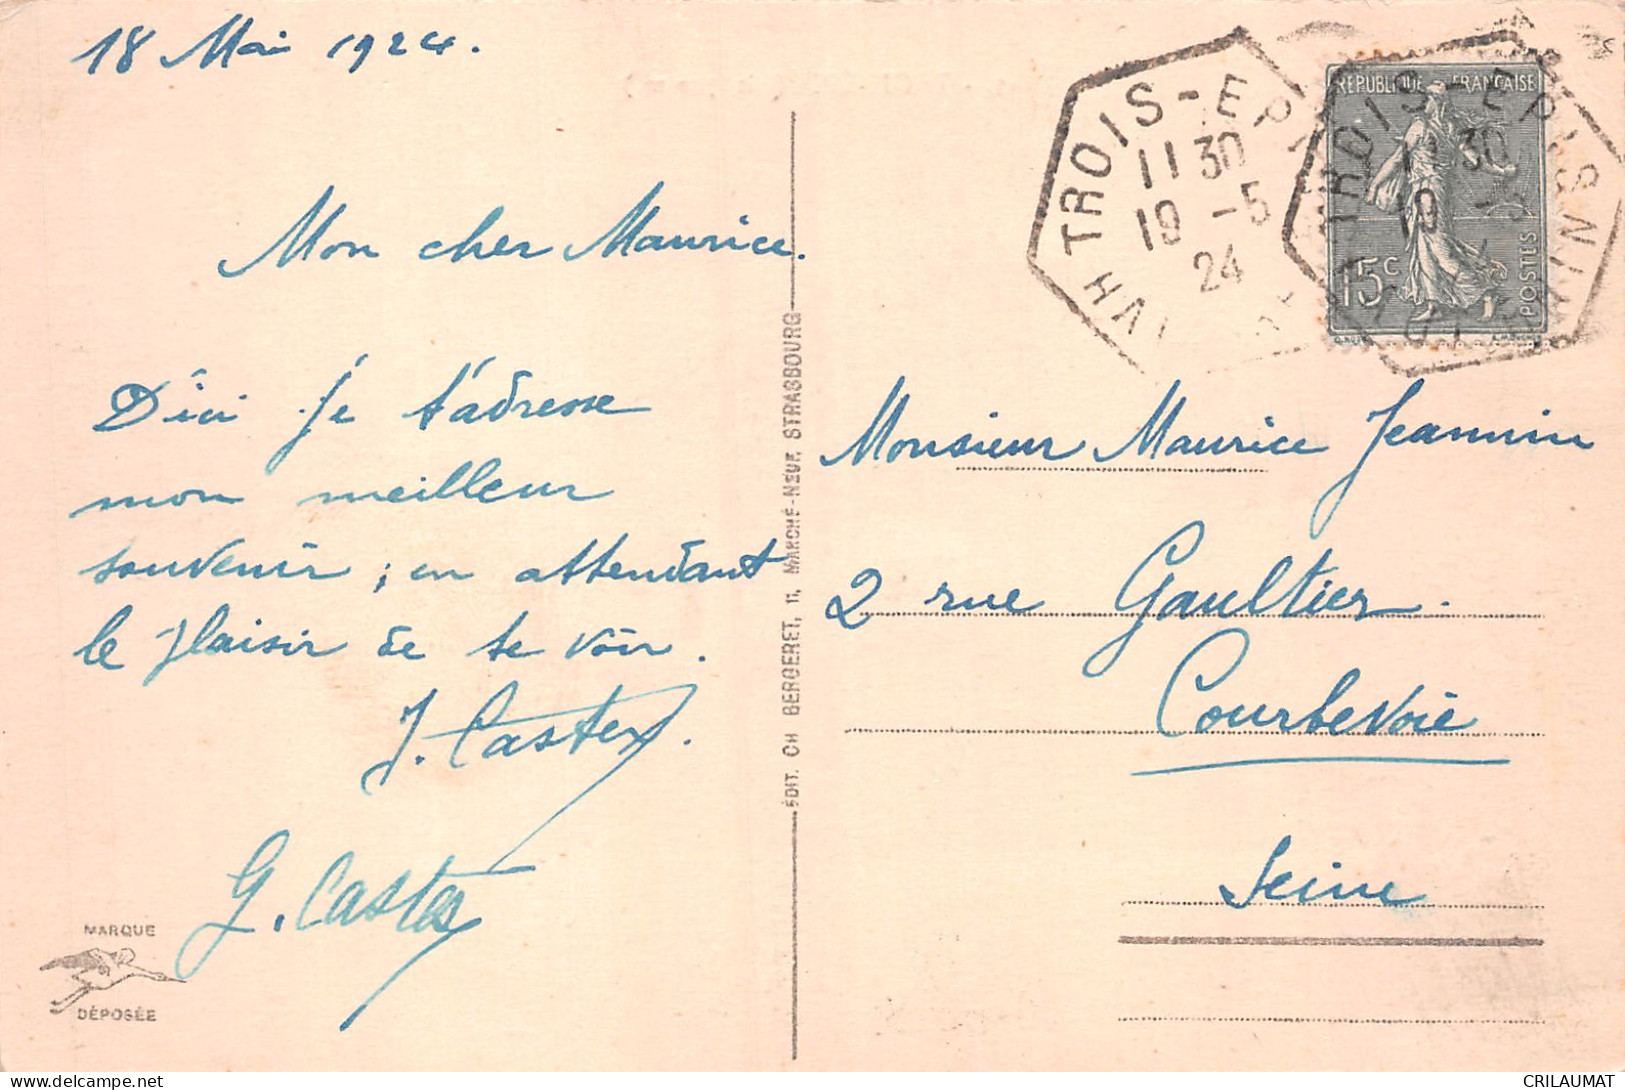 18 Mai 1924.
Mon cher Maurice.
D'ici je t'adresse
mon meilleur
souvenir ; en attendant
le plaisir de te voir.
J. Castex.
G. Castex
MARQUE
DÉPOSÉE
ÉDIT. CH BERGERET, 11, MARCHÉ-NEUF, STRASBOURG
TROIS-EPI
11 30
19 -5
24
TROIS-EPIS
HT RHIN
11 30
19 -5
REPUBLIQUE FRANÇAISE
15c
POSTES
Monsieur Maurice Jeannin
2 rue Gaultier.
Courbevoie
Seine
CRILAUMAT